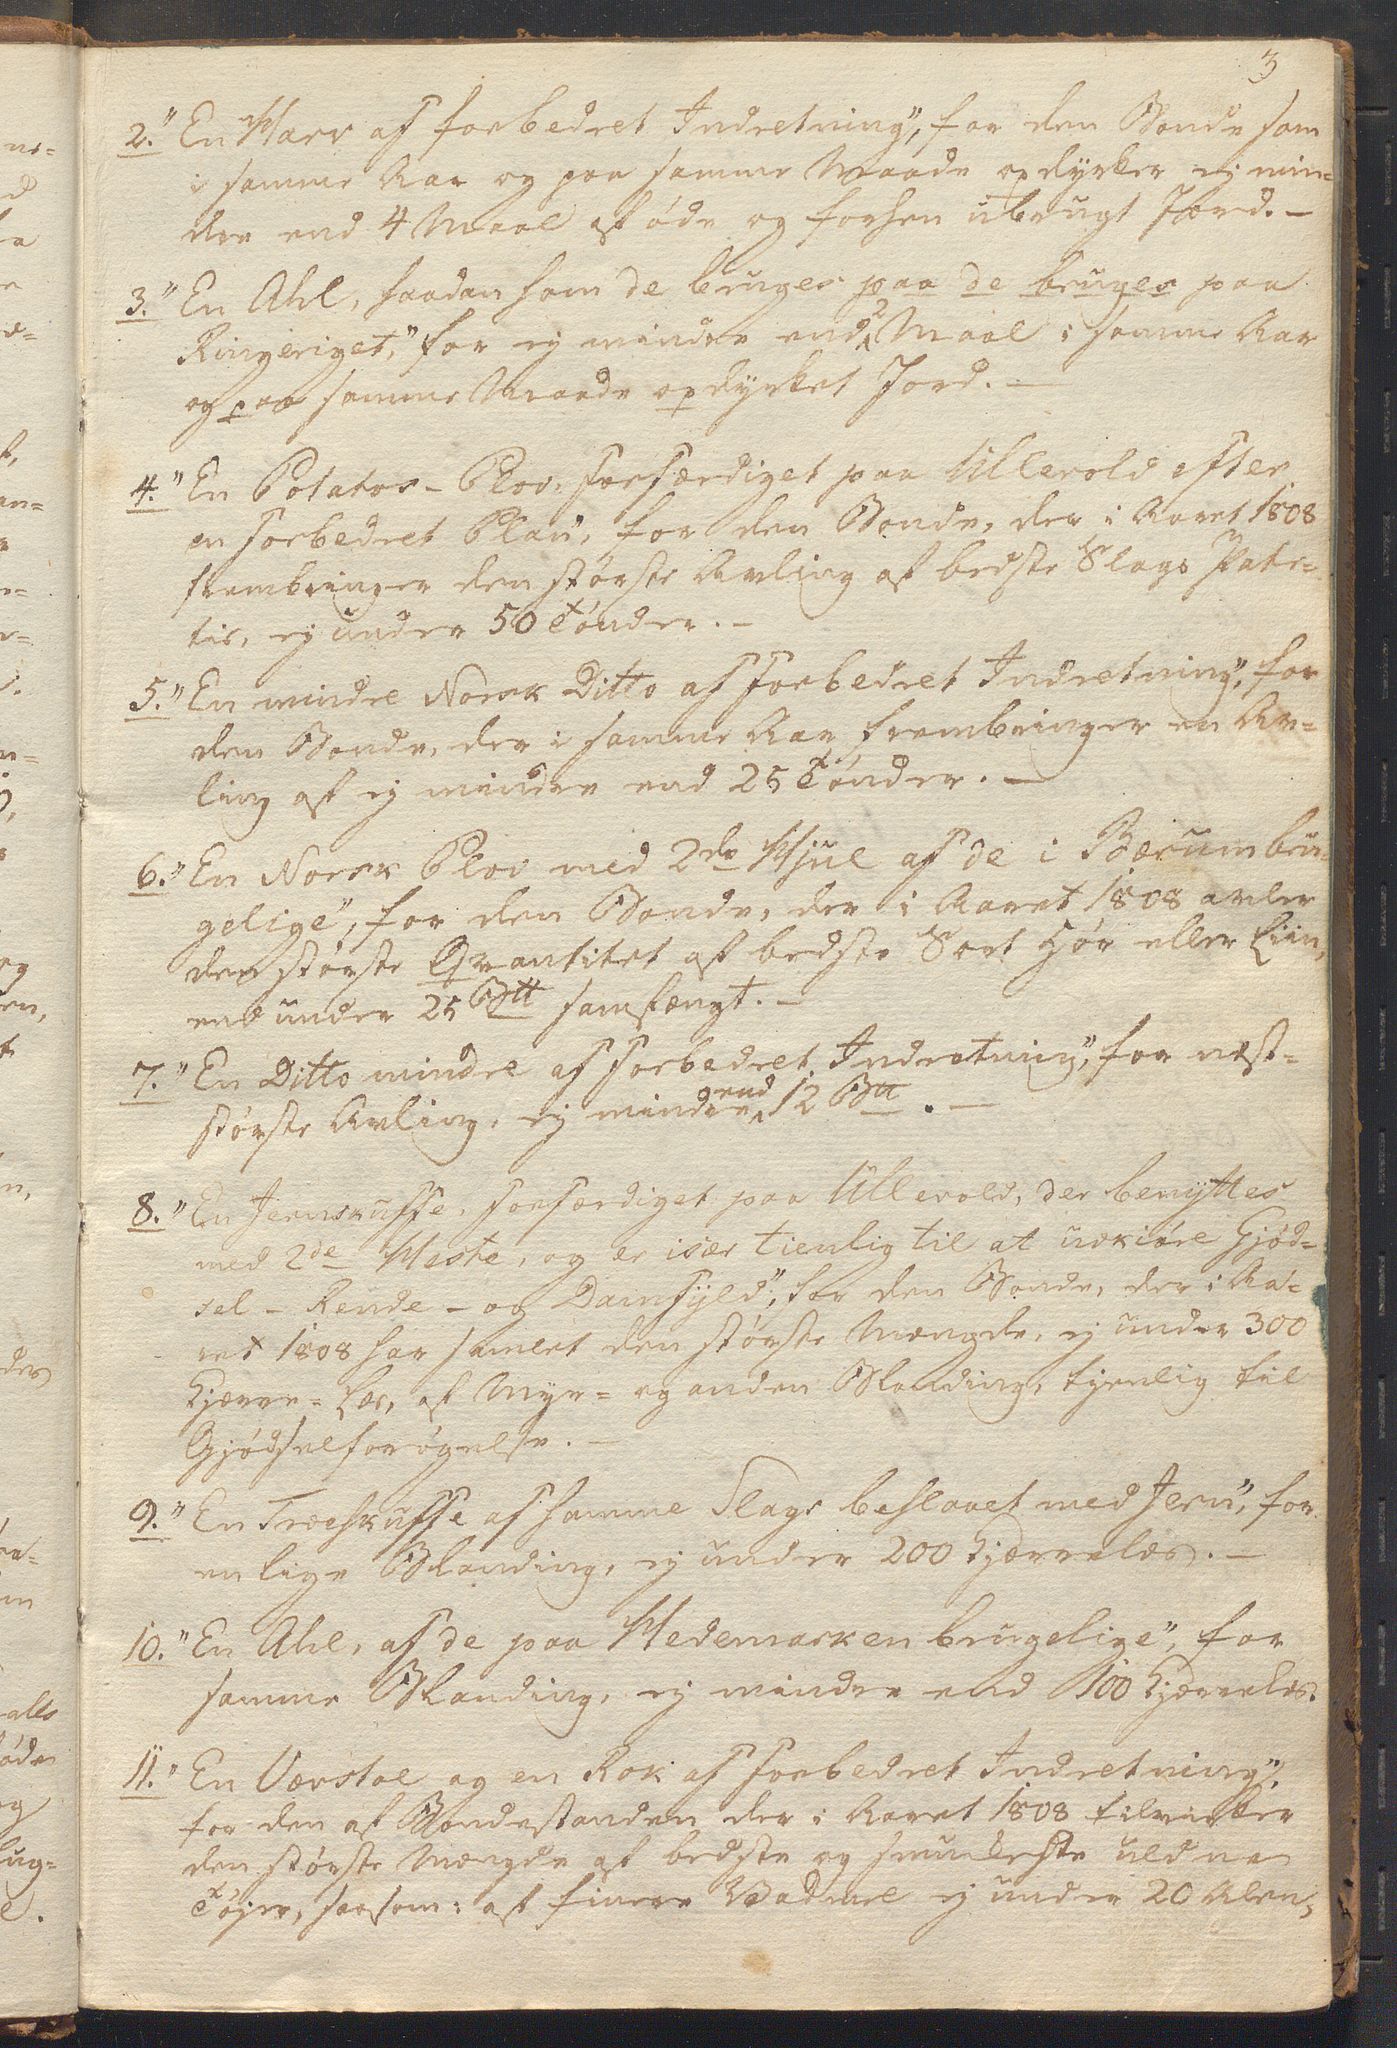 3
2." En Harv af forbedret Indretning", for den Bonde som
i samme Aar og paa samme Maade opdyrker ej min-
dre end 4 Maal af øde og forhen ubrugt Jord. -
3." En Ahl, saadan som de bruges paa de bruges paa
Ringeriget," for ej mindre end 2 Maal i samme Aar
og paa samme Maade opdyrket Jord. -
4." En Potatos-Plov, forfærdiget paa Ullevold efter
en forbedret Plan", for den Bonde, der i Aaret 1808
frembringer den største Avling af bedste Slags Pote-
tis, ej under 50 Tønder. -
5." En mindre Norsk Ditto af forbedret Indretning", for
den Bonde, der i samme Aar frembringer en Av-
ling af ej mindre end 25 Tønder. -
6." En Norsk Plov med 2de Hjul af de i Bærum bru-
gelige", for den Bonde, der i Aaret 1808 avler
den største Qvantitet af bedste Sort Hør eller Liin,
end under 25 Btt samfængt. -
7." En Ditto mindre af forbedret Indretning", for næst-
største Avling, ej mindre end 12 Btt. -
8." En Jernskuffe, forfærdiget paa Ullevold, der benyttes
med 2de Heste, og er især tienlig til at udkiøre Gjød-
sel - Rende - og Damfyld", for den Bonde, der i Aa-
ret 1808 har samlet den største Mængde, ej under 300
Kjærre-Læs, af Myr- og anden Blanding, tjenlig til
Gjødselforøgelse. -
9." En Træskuffe af samme Slags beslaaet med Jern", for
en lige Blanding, ej under 200 Kjærrelæs. -
10." En Ahl, af de paa Hedemarken brugelige", for
samme Blanding, ej mindre end 100 Kjærrelæs.
11." En Vævstol og en Rok af forbedret Indretning",
for den af Bondestanden der i Aaret 1808 tilvirker
den største Mængde af bedste og smukkeste uldne
Tøjer, saasom: af finere Vadmel ej under 20 Alen,